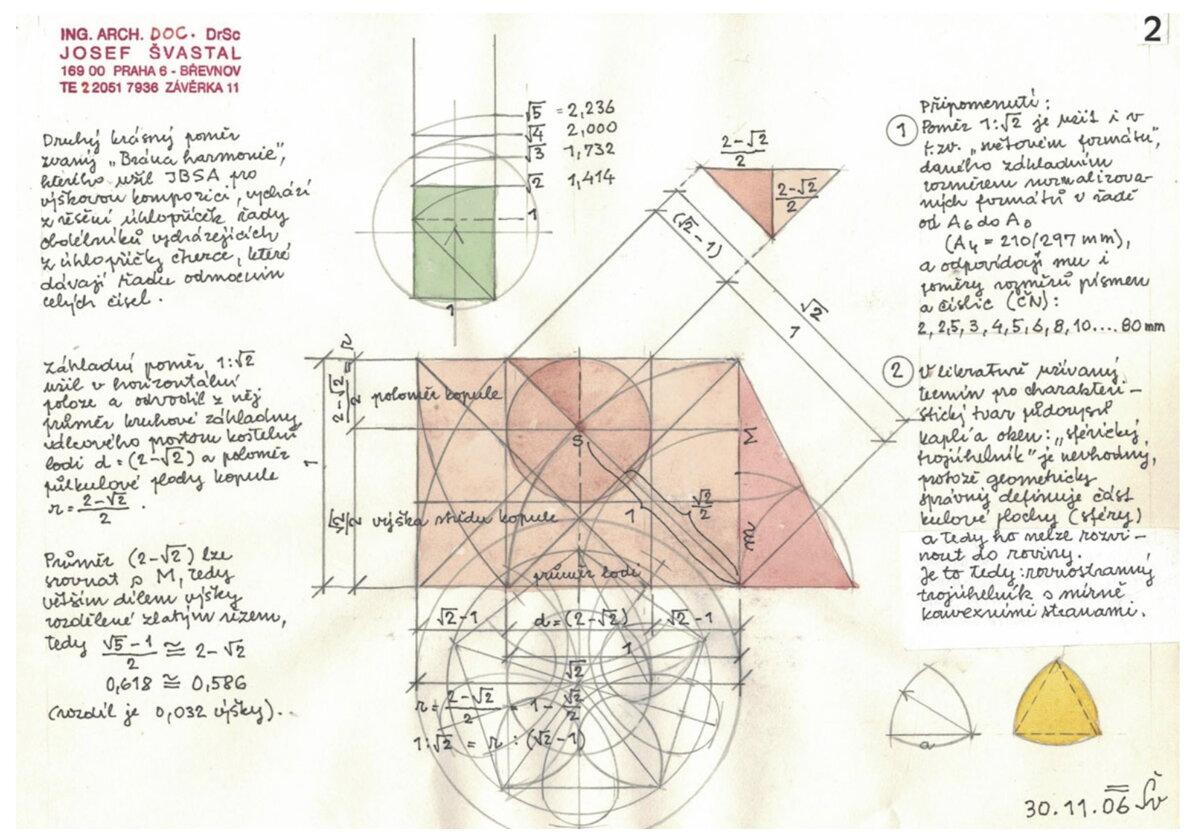 2
ING. ARCH. DOC. DrSc
JOSEF ŠVASTAL
169 00 PRAHA 6 - BŘEVNOV
TE 2 2051 7936 ZÁVĚRKA 11
Druhý krásný poměr
zvaný „Brána harmonie",
kterého užil JBSA pro
výškovou kompozici, vychází
z řešení úhlopříček řady
obdélníků vycházejících
z úhlopříčky čtverce, které
dávají řadu odmocnin
celých čísel.
Základní poměr 1:√2
užil v horizontální
poloze a odvodil z něj
průměr kruhové základny
válcového prostoru kostelní
lodi d=(2-√2) a poloměr
půlkulové plochy kopule
r = 2-√2/2 .
Průměr (2-√2) lze
srovnat s M, tedy
větším dílem výšky
rozdělené zlatým řezem,
tedy √5-1/2 ≅ 2-√2
0,618 ≅ 0,586
(rozdíl je 0,032 výšky).
√5 = 2,236
√4 2,000
√3 1,732
√2 1,414
1
1
2-√2/2
2-√2/2
(√2-1)
√2
1
2-√2/2 = r
poloměr kopule
S
M
1
√2/2
výška středu kopule
1
√2/2
m
průměr lodi
√2-1
d=(2-√2)
√2-1
1
√2
r = 2-√2/2 = 1-√2/2
1:√2 = r:(√2-1)
Připomenutí:
1 Poměr 1:√2 je užit i v
t.zv. „světovém formátu",
daného základním
rozměrem normalizova-
ných formátů v řadě
od A6 do A0
(A4 = 210/297 mm),
a odpovídají mu i
poměry rozměrů písmen
a číslic (ČN):
2, 2,5, 3, 4, 5, 6, 8, 10... 80 mm
2 V literatuře užívaný
termín pro charakteri-
stický tvar půdorysů
kaplí a oken: „sférický
trojúhelník" je nevhodný,
protože geometricky
správný definuje část
kulové plochy (sféry)
a tedy ho nelze rozvi-
nout do roviny.
Je to tedy: rovnostranný
trojúhelník s mírně
konvexními stranami.
a
30.11.06 Šv